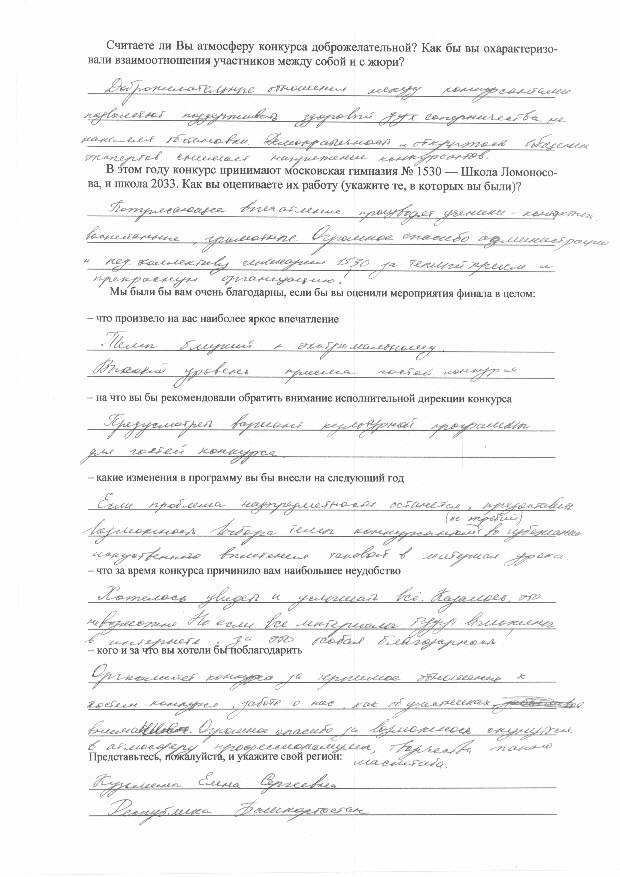 Считаете ли Вы атмосферу конкурса доброжелательной? Как бы вы охарактеризо-
вали взаимоотношения участников между собой и с жюри?
Доброжелательные отношения между конкурсантами
позволяют поддерживать здоровый дух соперничества не
обстановки. Демократичность, открытость общения
экспертов снимает напряжение конкурсантов.
В этом году конкурс принимают московская гимназия № 1530 — Школа Ломоносо-
ва, и школа 2033. Как вы оцениваете их работу (укажите те, в которых вы были)?
Потрясающее впечатление производят ученики - контактны,
воспитанные, грамотные. Огромное спасибо администрации
и пед. коллективу гимназии 1530 за теплый прием и
прекрасную организацию.
Мы были бы вам очень благодарны, если бы вы оценили мероприятия финала в целом:
– что произвело на вас наиболее яркое впечатление
Темп близкий к экстремальному.
Высокий уровень приема гостей конкурса
– на что вы бы рекомендовали обратить внимание исполнительной дирекции конкурса
Предусмотреть вариант культурной программы
для гостей конкурса.
– какие изменения в программу вы бы внесли на следующий год
Если проблема надпредметности останется, предоставить
(не жребий)
возможность выбора темы конкурсантам во избежание
искусственного вплетения таковой в материал урока.
– что за время конкурса причинило вам наибольшее неудобство
Хотелось увидеть и услышать всё. Казалось, это
невозможно. Но если все материалы будут выложены
в интернете, за это особая благодарность
– кого и за что вы хотели бы поблагодарить
Оргкомитет конкурса за отношение к
гостям конкурса, заботу о нас, как об участниках
Огромное спасибо за возможность окунуться
в атмосферу профессионализма, творчества такого
масштаба.
Представьтесь, пожалуйста, и укажите свой регион:
Кузьмина Елена Сергеевна
Республика Башкортостан